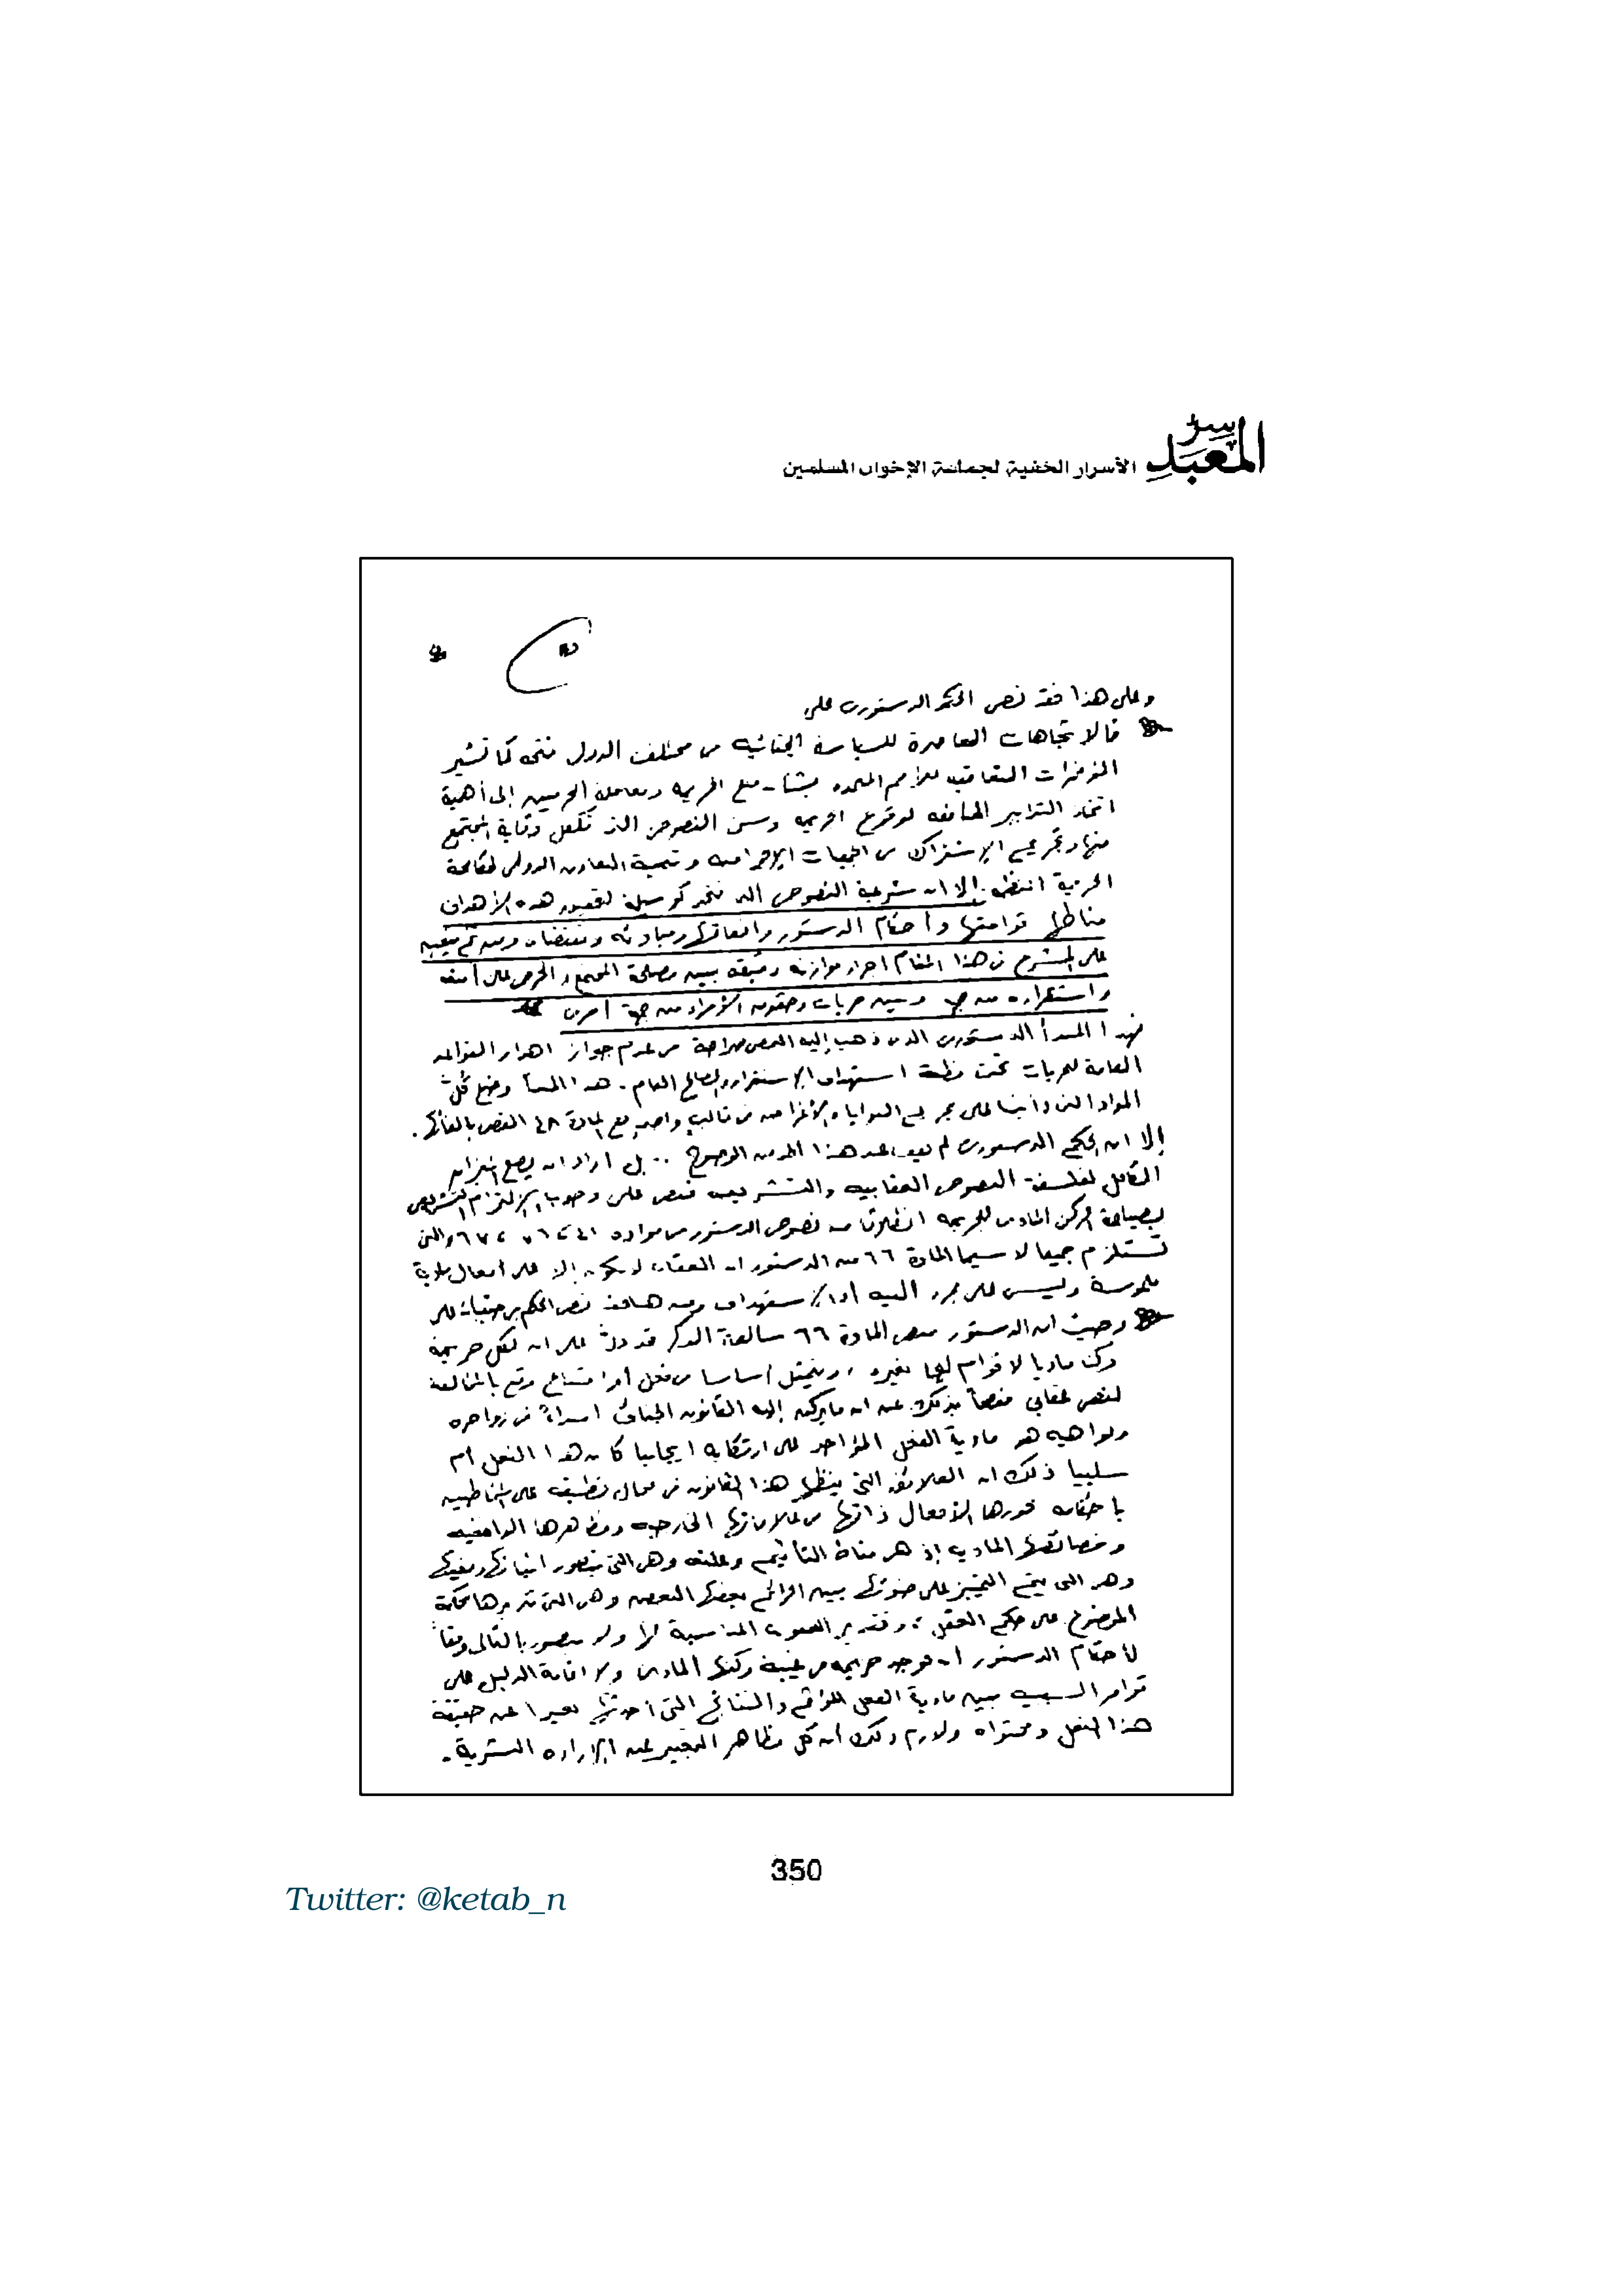 سر
المعبد
الأسرار الخفية لجماعة الإخوان المسلمين
وعلى هذا فقد نص الحكم الدستورى على
فالاتجاهات المعاصرة للسياسة الجنائية من مختلف الدول متجه كما تشير
المؤتمرات المتعاقبه للأمم المتحده بشأن منع الجريمه ومعاملة المجرمين إلى أهمية
اتخاذ التدابير المانعه لوقوع الجريمه وسن النصوص التى تكفل وقاية المجتمع
منها وتجريم الإشتراك فى الجمعيات الإجراميه وتنمية التعاون الدولى لمكافحة
الجريمة المنظمه إلا ان شرعية النصوص التى تتخذ كوسيلة لتحقيق هذه الأهداف
مناطها توافقها وأحكام الدستور واتفاقها ومبادئه ومقتضاه ومن ثم يتعين
على المشرع فى هذا المقام اجراء موازنه دقيقه بين مصلحة المجتمع والحرص على أمنه
واستقراره من جهه وبين حريات وحقوق الأفراد من جهة أخرى
فهذا المبدأ الدستورى الذى ذهب إليه النص صراحة من عدم جواز اهدار القواعد
العامة للحريات تحت مظلة استهداف الإستقرار والصالح العام. هذا المبدأ وضع كل
المواد التى دأبنا على تجريم النوايا والأغراض فى قالب واحد مع المادة ٤٨ المقضى بالغائها.
إلا ان الحكم الدستورى لم يقف عند هذا الحد من الوضوح .. بل أراد ان يضع الميزان
الكامل لفلسفة النصوص العقابيه والتشريعيه فنص على وجوب الإلتزام التشريعى
بصياغة الركن المادى للجريمه انطلاقا من نصوص الدستور فى مواده ٤١، ٦٦، ٦٧ والتى
تستلزم جميعا لا سيما المادة ٦٦ من الدستور ان العقاب لا يكون إلا على أفعال مادية
ملموسة وليس على مجرد النيه أو الاستهداف ومن هنا فقد نص الحكم فى حيثياته على
وحيث ان الدستور بنص المادة ٦٦ سالفة الذكر قد دل على ان لكل جريمة
ركنا ماديا لا قوام لها بغيره ، ويتمثل أساسا فى فعل أو امتناع وقع بالمخالفة
لنص عقابى مفصحا بذلك عن ان ما يركن إليه القانون الجنائى ابتداءً فى زواجره
ونواهيه هو مادية الفعل المؤاخذ على ارتكابه ايجابيا كان هذا الفعل أم
سلبيا ذلك ان العلائق التى ينظمها هذا القانون فى مجال تطبيقه على المخاطبين
بأحكامه محورها الأفعال ذاتها فى علاماتها الخارجيه ومظاهرها الواقعيه
وخصائصها الماديه إذ هى مناط التأثيم وعلته وهى التى يتصور اثباتها ونفيها
وهى التى يتم التمييز على ضوئها بين الجرائم بعضها البعض وهى التى تديرها محكمة
الموضوع على حكم العقل ، وتقدير العقوبة المناسبة لها ولا يتصور بالتالى وفقا
لأحكام الدستور أن توجد جريمه فى غيبة ركنها المادى ولا اقامة الدليل على
توافر السببيه بين مادية الفعل المؤثم والنتائج التى أحدثها بعيدا عن حقيقة
هذا الفعل ومحتواه ولازم ذلك أن كل مظاهر التعبير عن الإراده البشرية.
350
Twitter: @ketab_n